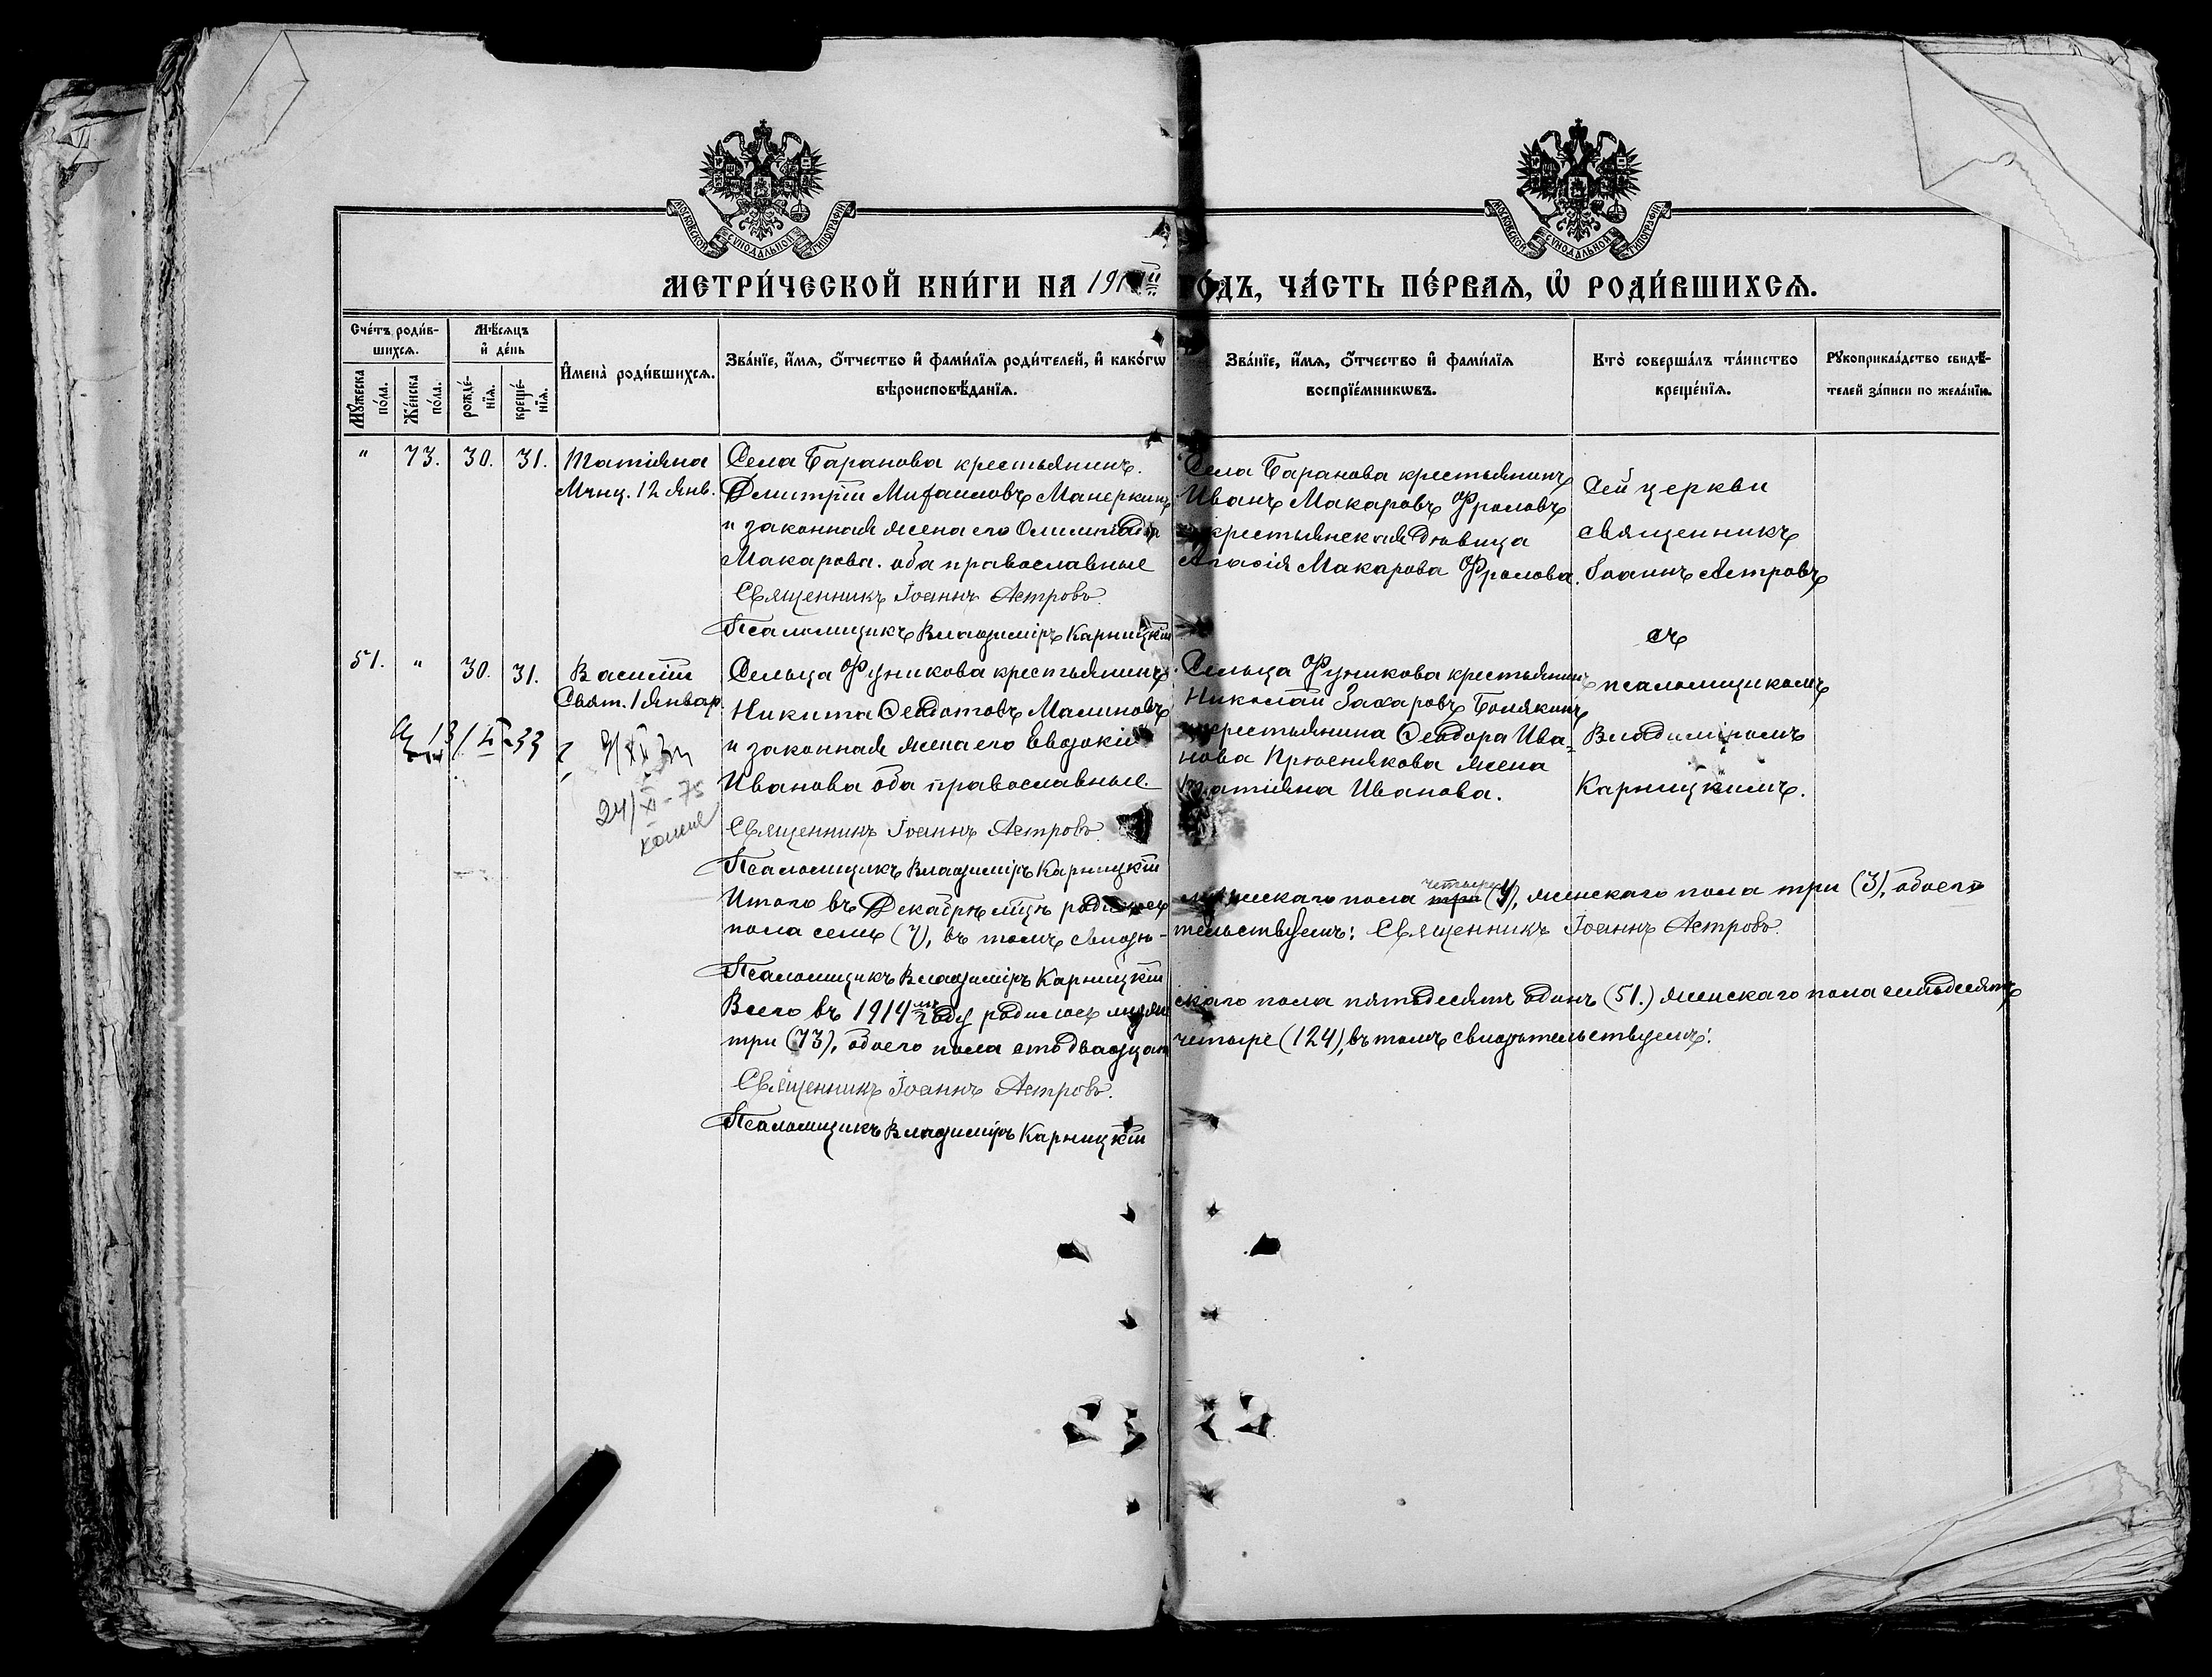 МОСКОВСКОЙ СѴНОДАЛЬНОЙ ТИПОГРАФІИ
МОСКОВСКОЙ СѴНОДАЛЬНОЙ ТИПОГРАФІИ
МЕТРИ́ЧЕСКОЙ КНИ́ГИ НА 1914й ГО́ДЪ, ЧА́СТЬ ПЕ́РВАѦ, Ѡ҆ РОДИ́ВШИХСѦ.
Сче́тъ роди́в-
шихсѧ.
Мѣ́сѧцъ
и҆ де́нь
И҆мена̀ роди́вшихсѧ.
Зва́нїе, и҆́мѧ, ѻ҆́тчество и҆ фами́лїѧ роди́телей, и҆ како́гѡ
вѣроисповѣ́данїѧ.
Зва́нїе, и҆́мѧ, ѻ҆́тчество и҆ фами́лїѧ
воспрїе́мникѡвъ.
Кто̀ соверша́лъ та́инство
креще́нїѧ.
Рꙋкоприкла́дство свидѣ́-
телей за́писи по жела́нїю.
Мꙋ́жеска
по́ла.
Же́нска
по́ла.
рожде́-
нїѧ.
креще́-
нїѧ.
" 73. 30. 31. Татіяна
Мчнц. 12 Янв.
Села Баранова крестьянинъ.
Дмитрій Михаиловъ Манеркинъ
и законная жена его Олимпіада
Макарова. оба православные
Священникъ Іоаннъ Астровъ.
Псаломщикъ Владиміръ Карницкій
Села Баранова крестьянинъ
Иванъ Макаровъ Фроловъ
крестьянская дѣвица
Агафія Макарова Фролова.
Сей церкви
священникъ
Іоаннъ Астровъ
съ
псаломщикомъ
Владиміромъ
Карницкимъ.
51. " 30. 31. Василій
Свят. 1 Январ.
Сельца Фуникова крестьянинъ
Никита Ѳедотовъ Малиновъ
и законная жена его Евдокія
Иванова оба православные.
Священникъ Іоаннъ Астровъ.
Псаломщикъ Владиміръ Карницкій
Сельца Фуникова крестьянинъ
Николай Захаровъ Болякинъ
крестьянина Ѳеодора Ива-
нова Прюснякова жена
Татіяна Иванова.
24/XI-75
Итого въ Декабрѣ мцѣ родилось мужескаго пола три четыре (4), женскаго пола три (3), обоего
пола семь (7), въ томъ свидѣ-тельствуемъ: Священникъ Іоаннъ Астровъ.
Псаломщикъ Владиміръ Карницкій
Всего въ 1914мъ году родилось мужескаго пола пятьдесятъ одинъ (51.) женскаго пола семьдесятъ
три (73), обоего пола сто двадцать четыре (124), въ томъ свидѣтельствуемъ:
Священникъ Іоаннъ Астровъ.
Псаломщикъ Владиміръ Карницкій